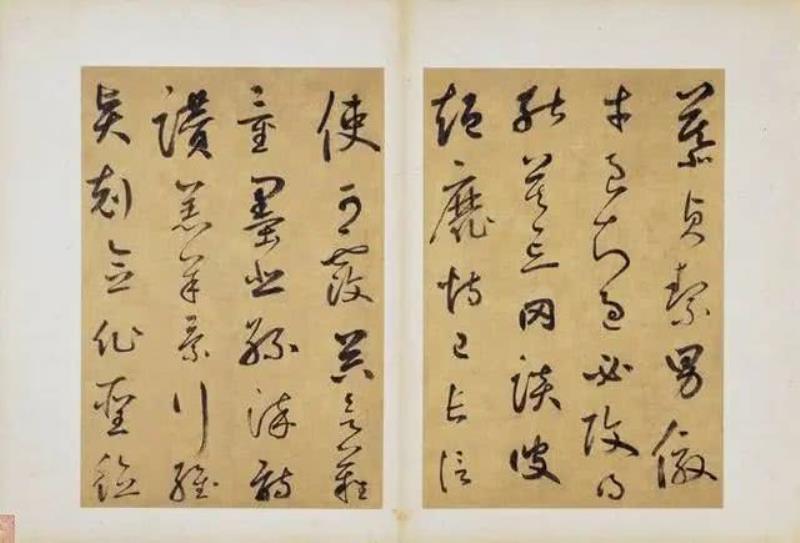 慕貞絜男傚
才良知過必改得
能莫忘罔談彼
短靡恃己長信
使可覆器欲難
量墨悲絲染詩
讚羔羊景行維
賢剋念作聖德